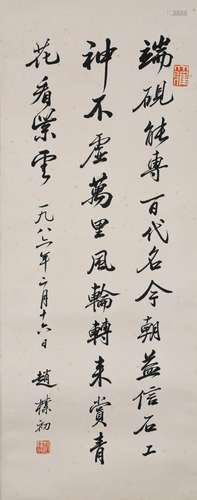 端硯能專百代名今朝益信石工
神不虛萬里風輪轉来賞青
花看紫雲 一九八二年二月十六日 趙樸初